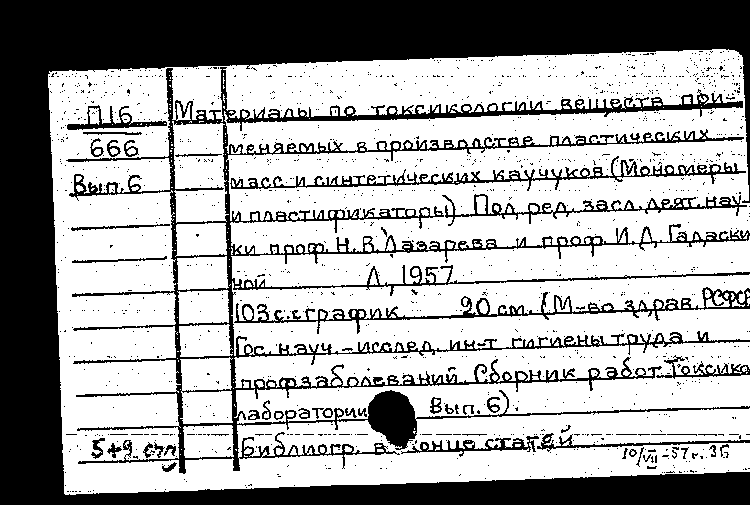 П16 Материалы по токсикологии веществ при-
666 меняемых в производстве пластических
Вып. 6 масс и синтетических каучуков (Мономеры
и пластификаторы). Под ред. засл. деят. нау-
ки проф. Н. В. Лазарева и проф. И. Д. Гадаски
ной Л., 1957.
103 с. с график. 20 см. (М-во здрав. РСФСР
Гос. науч.-исслед. ин-т гигиены труда и
профзаболеваний. Сборник работ Токсико
лаборатории Вып. 6).
5+9 Библиогр. в конце статей
10/VII-57 г.